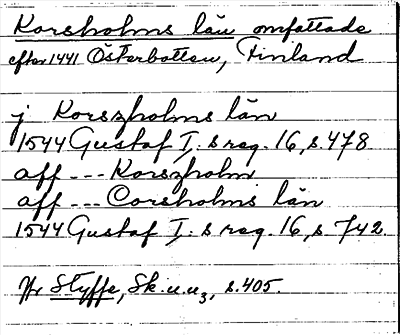 Korsholms län omfattade
efter 1441 Österbotten, Finland
j Korszholms län
1544 Gustaf I:s reg. 16, s. 478
aff --- Korszholm
aff --- Corsholms län
1544 Gustaf I:s reg. 16, s. 742
Jfr Styffe, Sk. u. u3, s. 405.